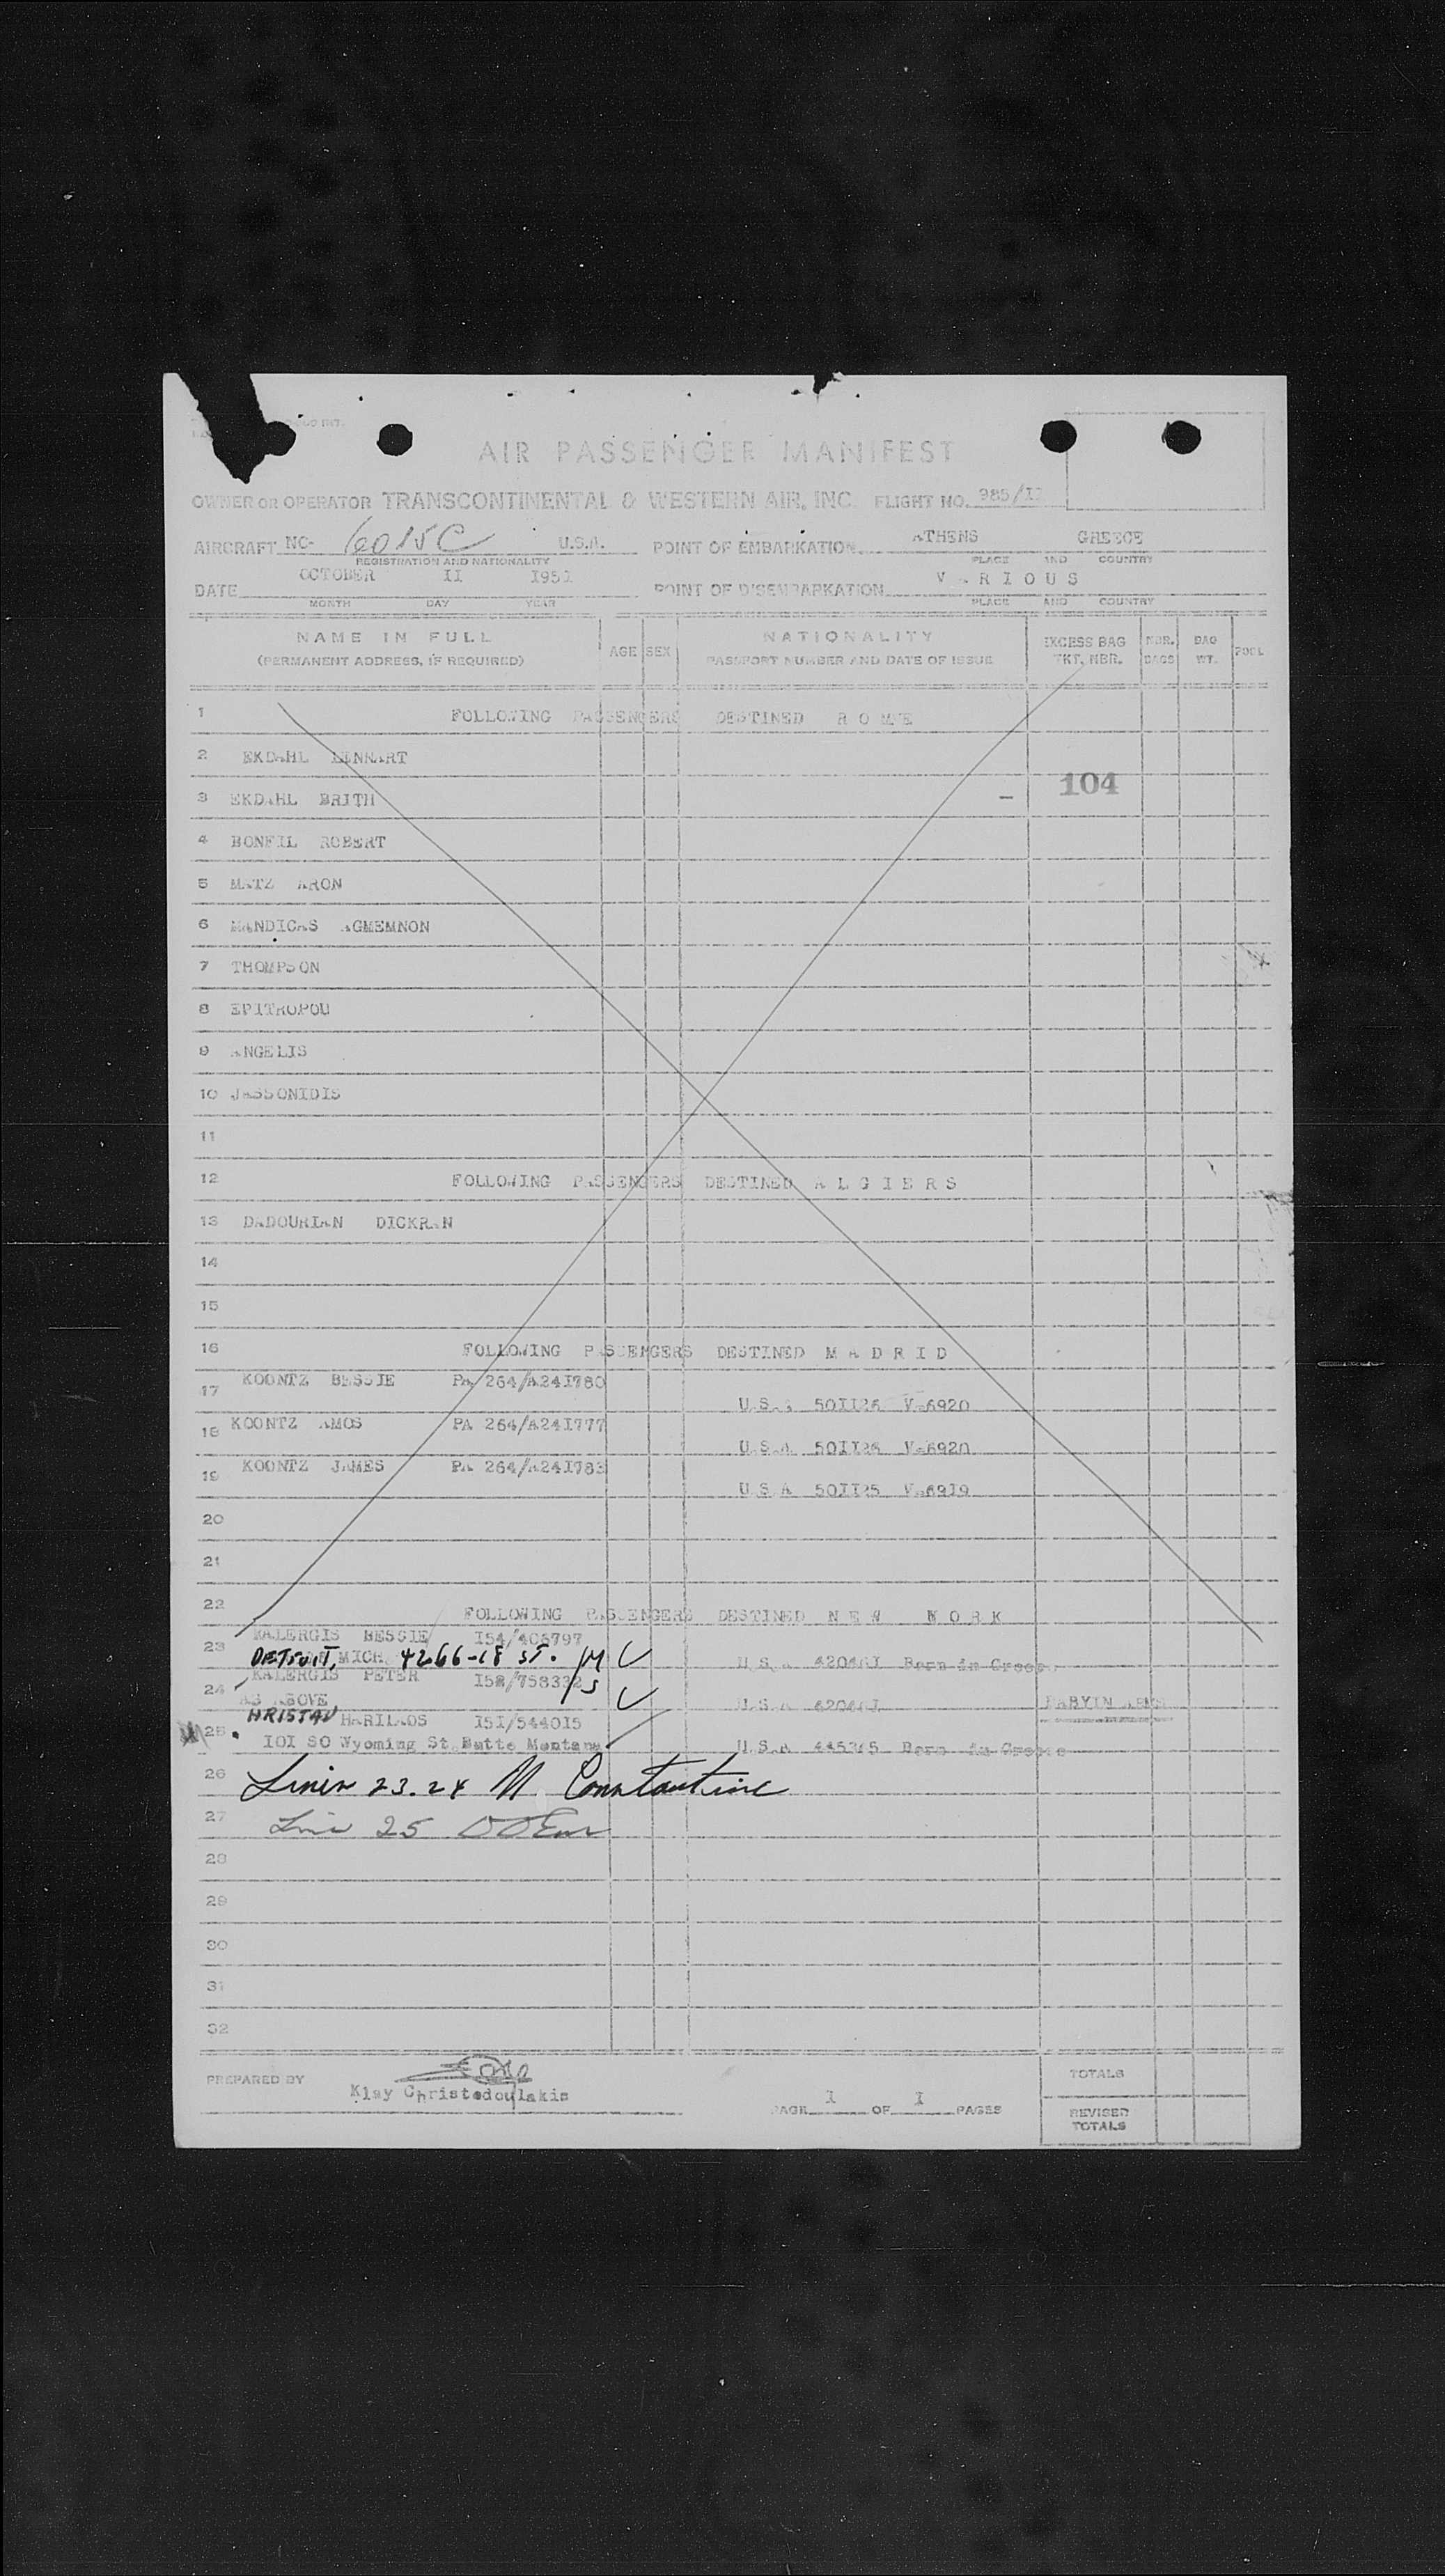 AIR PASSENGER MANIFEST
OWNER OR OPERATOR TRANSCONTINENTAL & WESTERN AIR, INC. FLIGHT NO. 985/II
AIRCRAFT NC- 6015C U.S.A. POINT OF EMBARKATION ATHENS GREECE
REGISTRATION AND NATIONALITY PLACE AND COUNTRY
DATE OCTOBER II I95I POINT OF DISEMBARKATION V A R I O U S
MONTH DAY YEAR PLACE AND COUNTRY
NAME IN FULL AGE SEX NATIONALITY EXCESS BAG NBR. BAG POOL
(PERMANENT ADDRESS, IF REQUIRED) PASSPORT NUMBER AND DATE OF ISSUE TKT. NBR. BAGS WT.
1 FOLLOWING PASSENGERS DESTINED R O M E
2 EKDAHL LENNART
3 EKDAHL BRITH - 104
4 BONFIL ROBERT
5 MATZ ARON
6 MANDICAS AGMEMNON
7 THOMPSON
8 EPITROPOU
9 ANGELIS
10 JASSONIDIS
11
12 FOLLOWING PASSENGERS DESTINED A L G I E R S
13 DADOURIAN DICKRAN
14
15
16 FOLLOWING PASSENGERS DESTINED M A D R I D
17 KOONTZ BESSIE PA 264/A24I780
U.S.A 50II26 V-6920
18 KOONTZ AMOS PA 264/A24I777
U.S.A 50II26 V-6920
19 KOONTZ JAMES PA 264/A24I783
U.S.A 50II25 V-6919
20
21
22 FOLLOWING PASSENGERS DESTINED N E W W O R K
KALERGIS BESSIE I54/406797
23 DETROIT, MICH 4266-18 ST. M U.S.A Born in Greece
KALERGIS PETER
24 AS ABOVE S U.S.A
HRISTAN HARILAOS I5I/544015
25 IOI SO Wyoming St Butte Montana U.S.A Born in Greece
26 Lines 23.24 M Constantine
27 Line 25
28
29
30
31
32
PREPARED BY Klay Christodoulakis
PAGE I OF I PAGES
TOTALS
REVISED
TOTALS